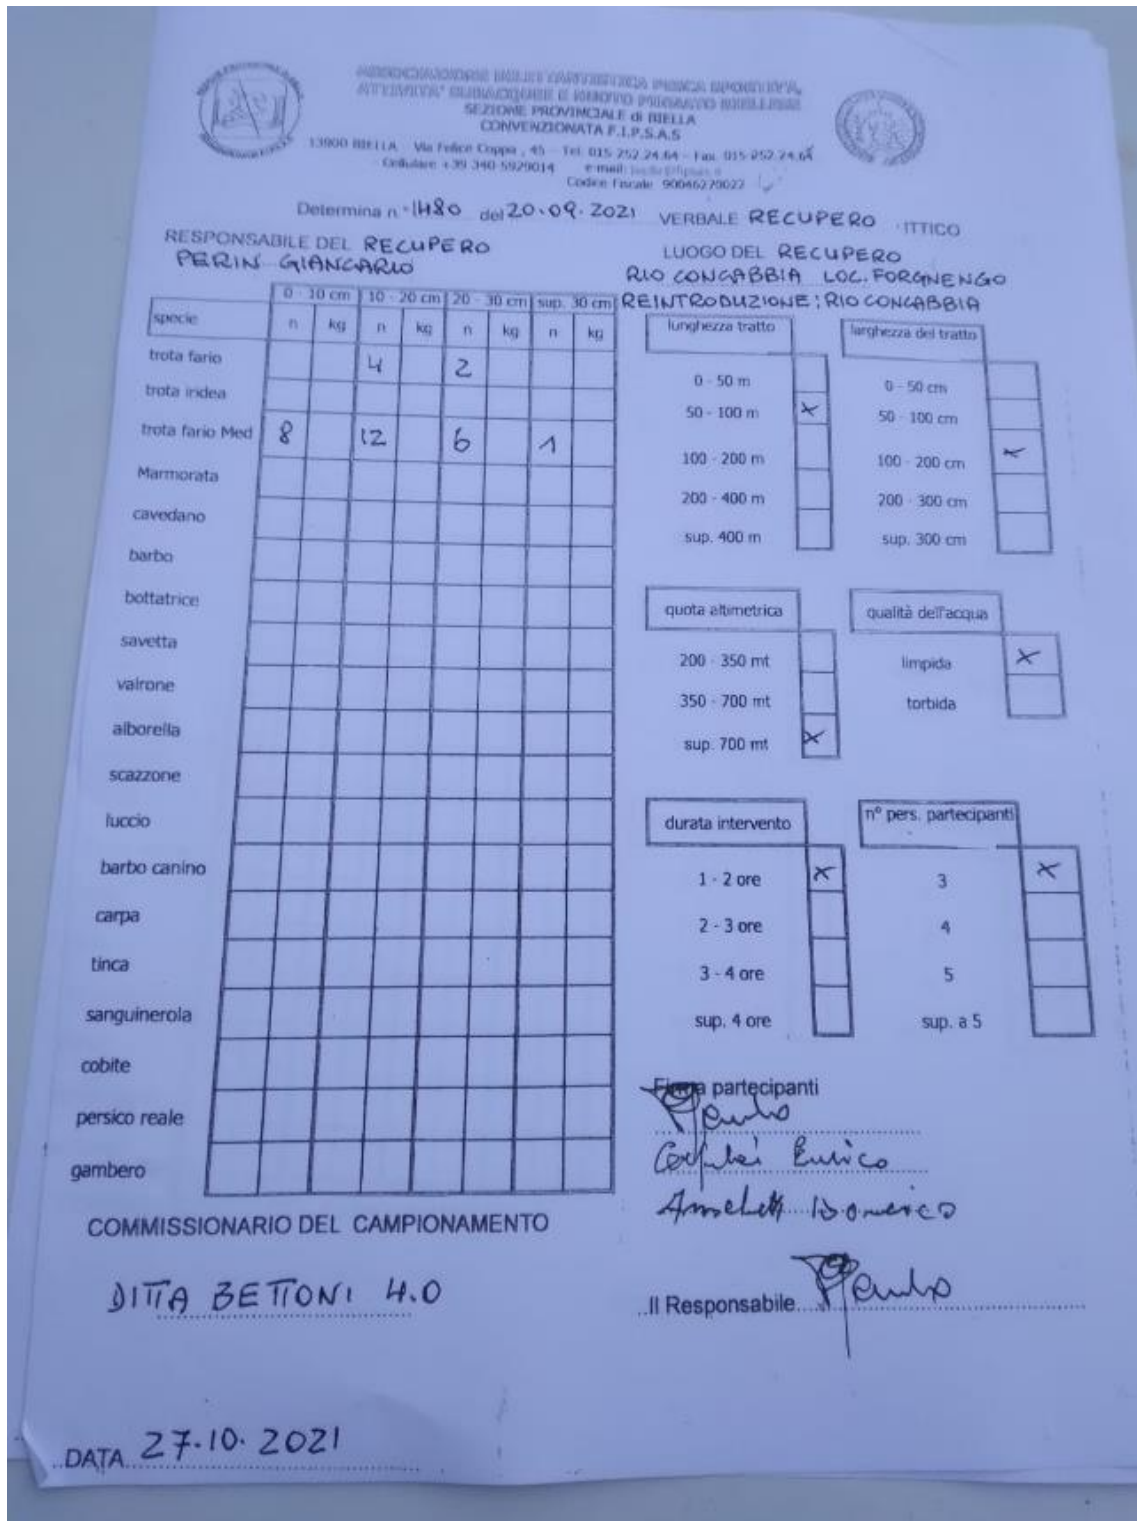 ASSOCIAZIONE DILETTANTISTICA PESCA SPORTIVA,
ATTIVITA' SUBACQUEE E NUOTO PINNATO BIELLESE
SEZIONE PROVINCIALE di BIELLA
CONVENZIONATA F.I.P.S.A.S
13900 BIELLA Via Felice Coppa , 45 - Tel. 015 252.24.64 - Fax. 015 252.24.64
Cellulare +39 340 5929014 e-mail:
Codice Fiscale 90046270022
Determina n. 1480 del 20.09.2021 VERBALE RECUPERO ITTICO
RESPONSABILE DEL RECUPERO
PERIN GIANCARLO
LUOGO DEL RECUPERO
RIO CONCABBIA LOC. FORGNENGO
REINTRODUZIONE: RIO CONCABBIA
0 - 10 cm 10 - 20 cm 20 - 30 cm sup. 30 cm
specie n kg n kg n kg n kg
trota fario 4 2
trota iridea
trota fario Med 8 12 6 1
Marmorata
cavedano
barbo
bottatrice
savetta
vairone
alborella
scazzone
luccio
barbo canino
carpa
tinca
sanguinerola
cobite
persico reale
gambero
lunghezza tratto
0 - 50 m
50 - 100 m x
100 - 200 m
200 - 400 m
sup. 400 m
larghezza del tratto
0 - 50 cm
50 - 100 cm
100 - 200 cm x
200 - 300 cm
sup. 300 cm
quota altimetrica
200 - 350 mt
350 - 700 mt
sup. 700 mt x
qualità dell'acqua
limpida x
torbida
durata intervento
1 - 2 ore x
2 - 3 ore
3 - 4 ore
sup. 4 ore
n° pers. partecipanti
3 x
4
5
sup. a 5
Firma partecipanti
Enrico
Domenico
COMMISSIONARIO DEL CAMPIONAMENTO
DITTA BETTONI 4.0
..Il Responsabile
..DATA 27.10.2021